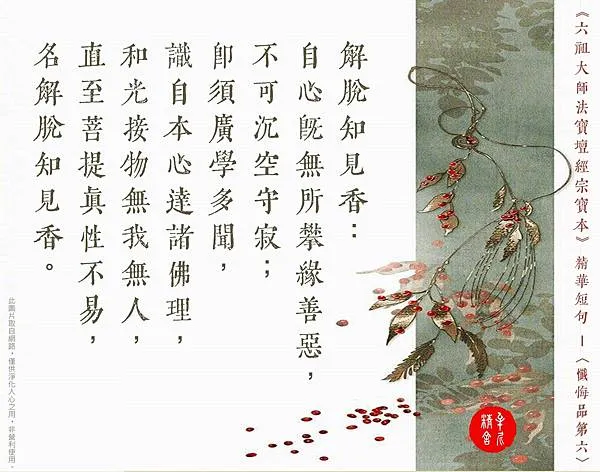 《六祖大師法寶壇經宗寶本》精華短句—〈懺悔品第六〉
解脫知見香：
自心旣無所攀緣善惡，
不可沉空守寂；
卽須廣學多聞，
識自本心達諸佛理，
和光接物無我無人，
直至菩提眞性不易，
名解脫知見香。
精舍
此圖片取自網路，僅供淨化人心之用，非營利使用。